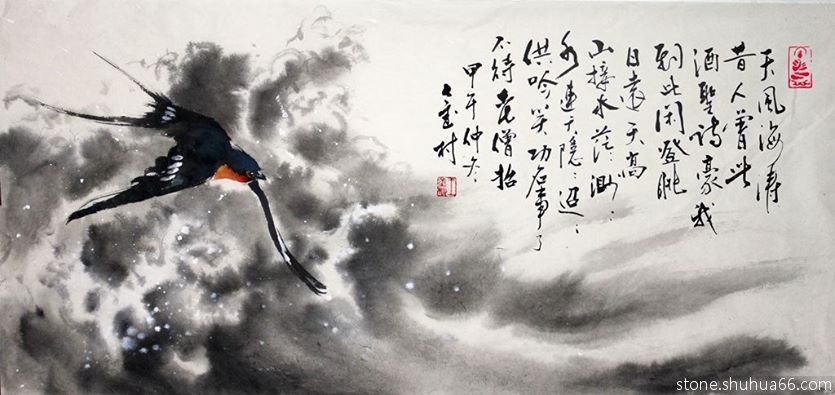 天风海涛
昔人曾此
酒聖詩豪我
到此闲登眺
日遠天高
山接水茫:渺:
水連天隐:迢:
供吟笑功名事了
不待老僧招
甲午仲冬
村
stone.shuhua66.com